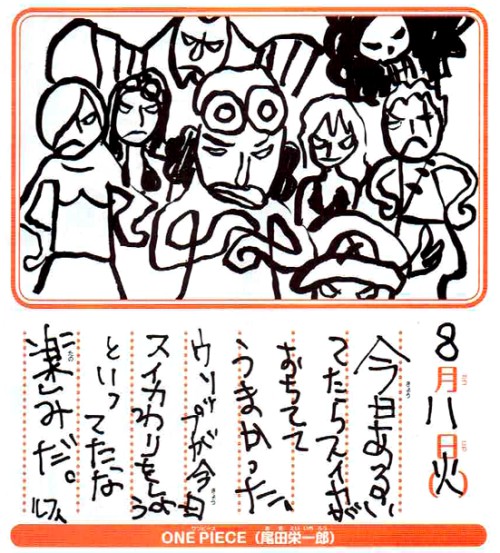 8月八日(火)
今日あるい
てたらスイカが
おちてて
うまかった。
ウソップが今日
スイカわりをしよう
といってたな
楽しみだ。 ルフィ
ONE PIECE(尾田栄一郎)